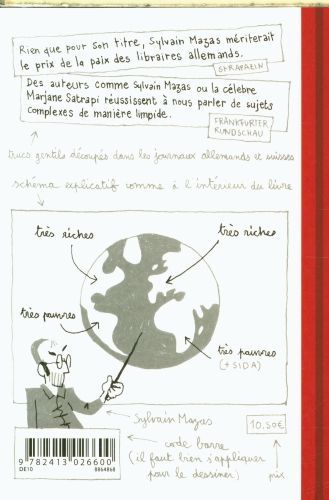 Rien que pour son titre, Sylvain Mazas mériterait
le prix de la paix des libraires allemands.
STRAPAZIN
Des auteurs comme Sylvain Mazas ou la célèbre
Marjane Satrapi réussissent à nous parler de sujets
complexes de manière limpide.
FRANKFURTER
RUNDSCHAU
trucs gentils découpés dans les journaux allemands et suisses
schéma explicatif comme à l'intérieur du livre
très riches
très riches
très pauvres
très pauvres
(+ SIDA)
Sylvain Mazas
10.50€
code barre
(il faut bien s'appliquer
pour le dessiner)
prix
9 782413 026600
DE10
8864868